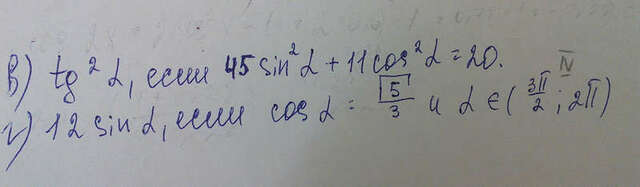 в) tg² α, если 45 sin² α + 11 cos² α = 20.
г) 12 sin α, если cos α = √5/3 и α ∈ (3π/2; 2π)
IV